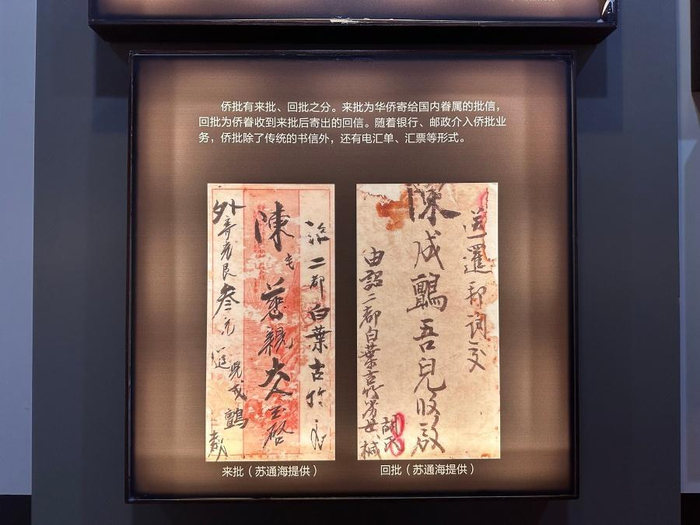 侨批有来批、回批之分。来批为华侨寄给国内眷属的批信，
回批为侨眷收到来批后寄出的回信。随着银行、邮政介入侨批业
务，侨批除了传统的书信外，还有电汇单、汇票等形式。
二都白葉古竹
陳 慈親大人啓
外寄光艮叁元
兒成
暹
陳成 吾兒收啟
由詔二都白葉古竹 母械
来批（苏通海提供）
回批（苏通海提供）